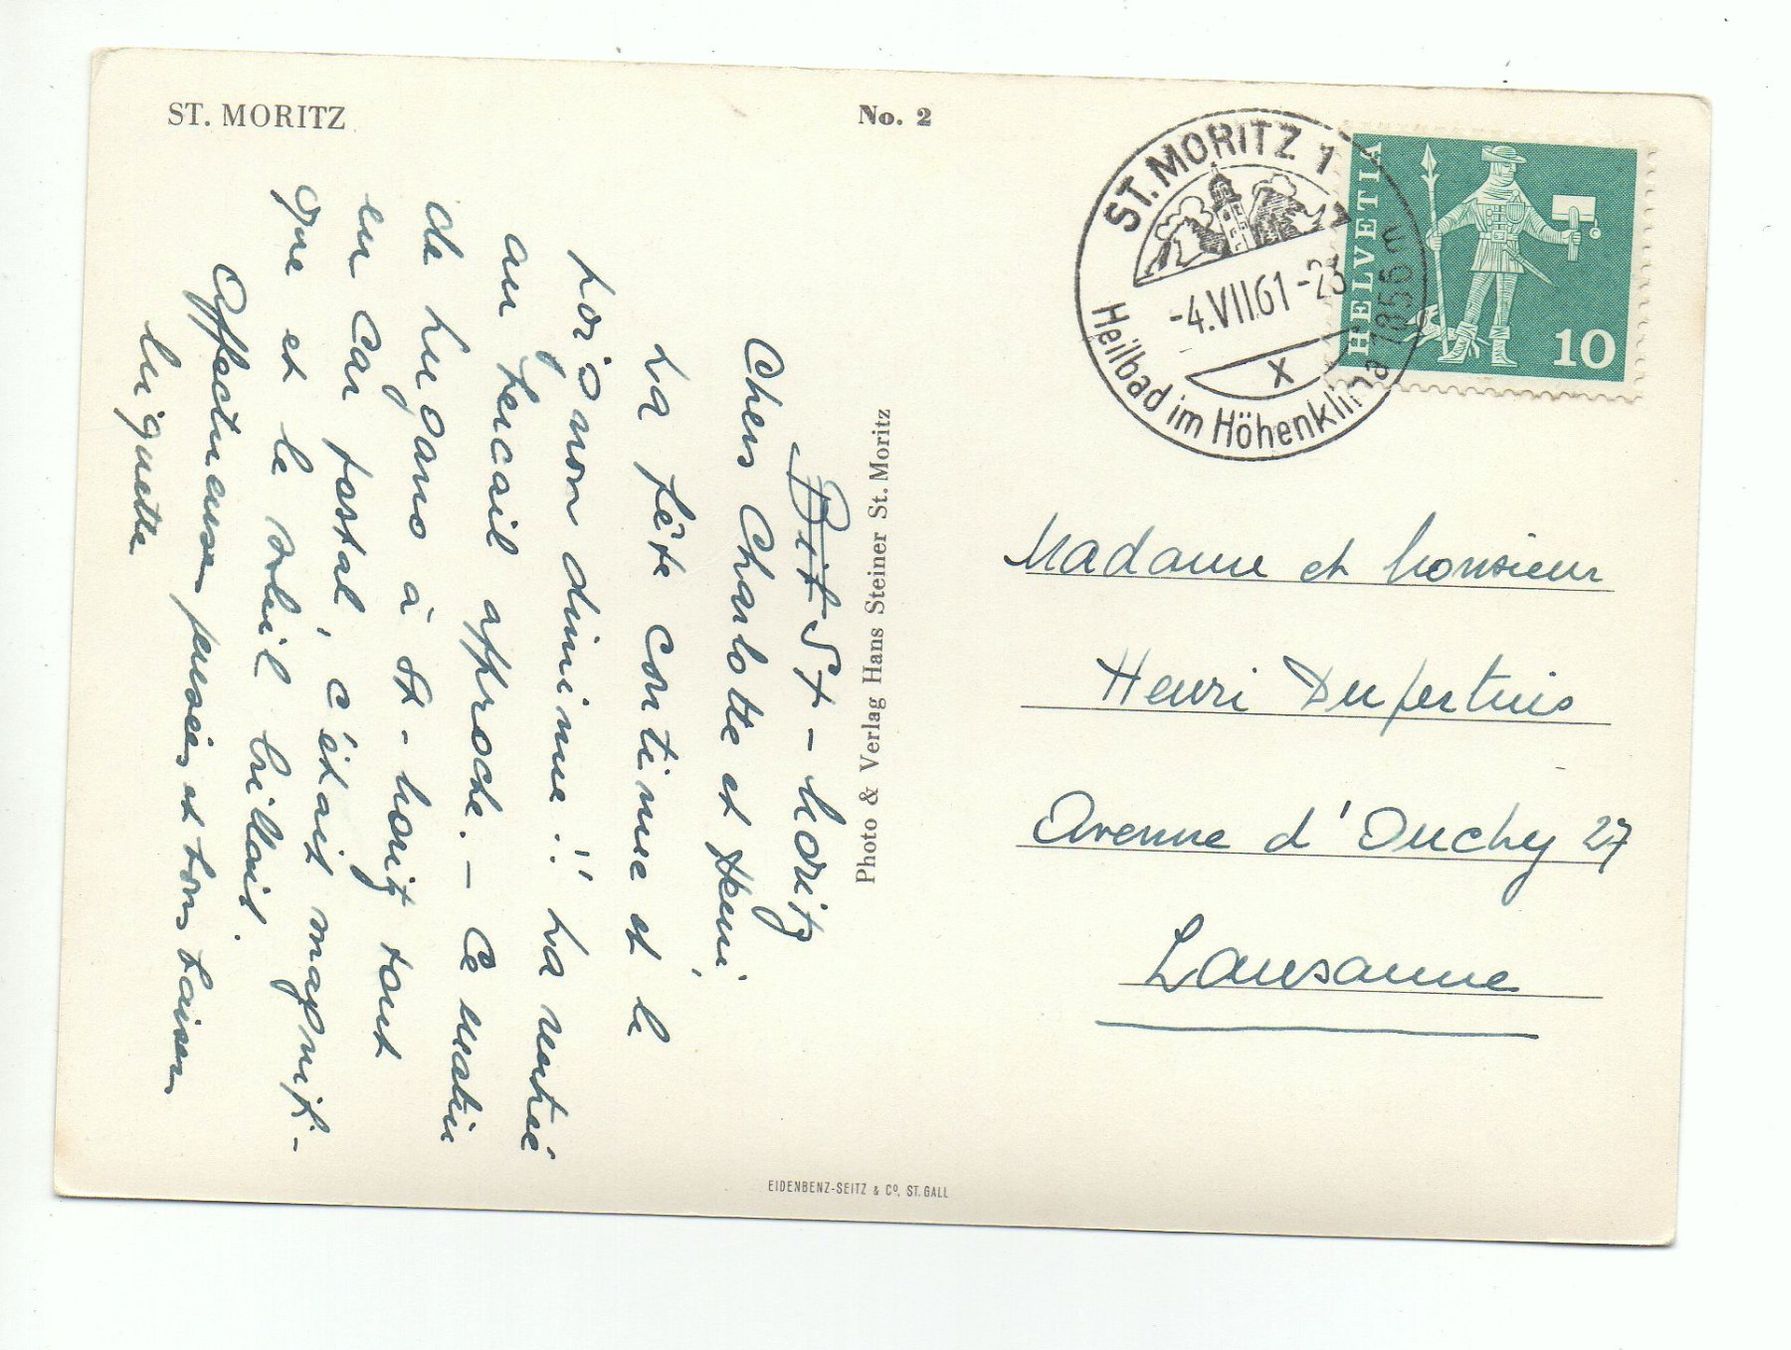 ST. MORITZ
No. 2
ST. MORITZ 1
-4.VII.61-23
X
Heilbad im Höhenklima 1856 m
HELVETIA
10
St-Moritz
Chers Charlotte et Henri,
La fête continue et le
poids non diminue!! La rentrée
au bercail approche. - Ce matin
de Lugano à St-Moritz tout
en car postal, c'était magnifi-
que et le soleil brillait.
Affectueuses pensées et bons baisers
Huguette
Photo & Verlag Hans Steiner St. Moritz
Madame et Monsieur
Henri Dufertuis
Avenue d'Ouchy 27
Lausanne
EIDENBENZ-SEITZ & Co. ST. GALL